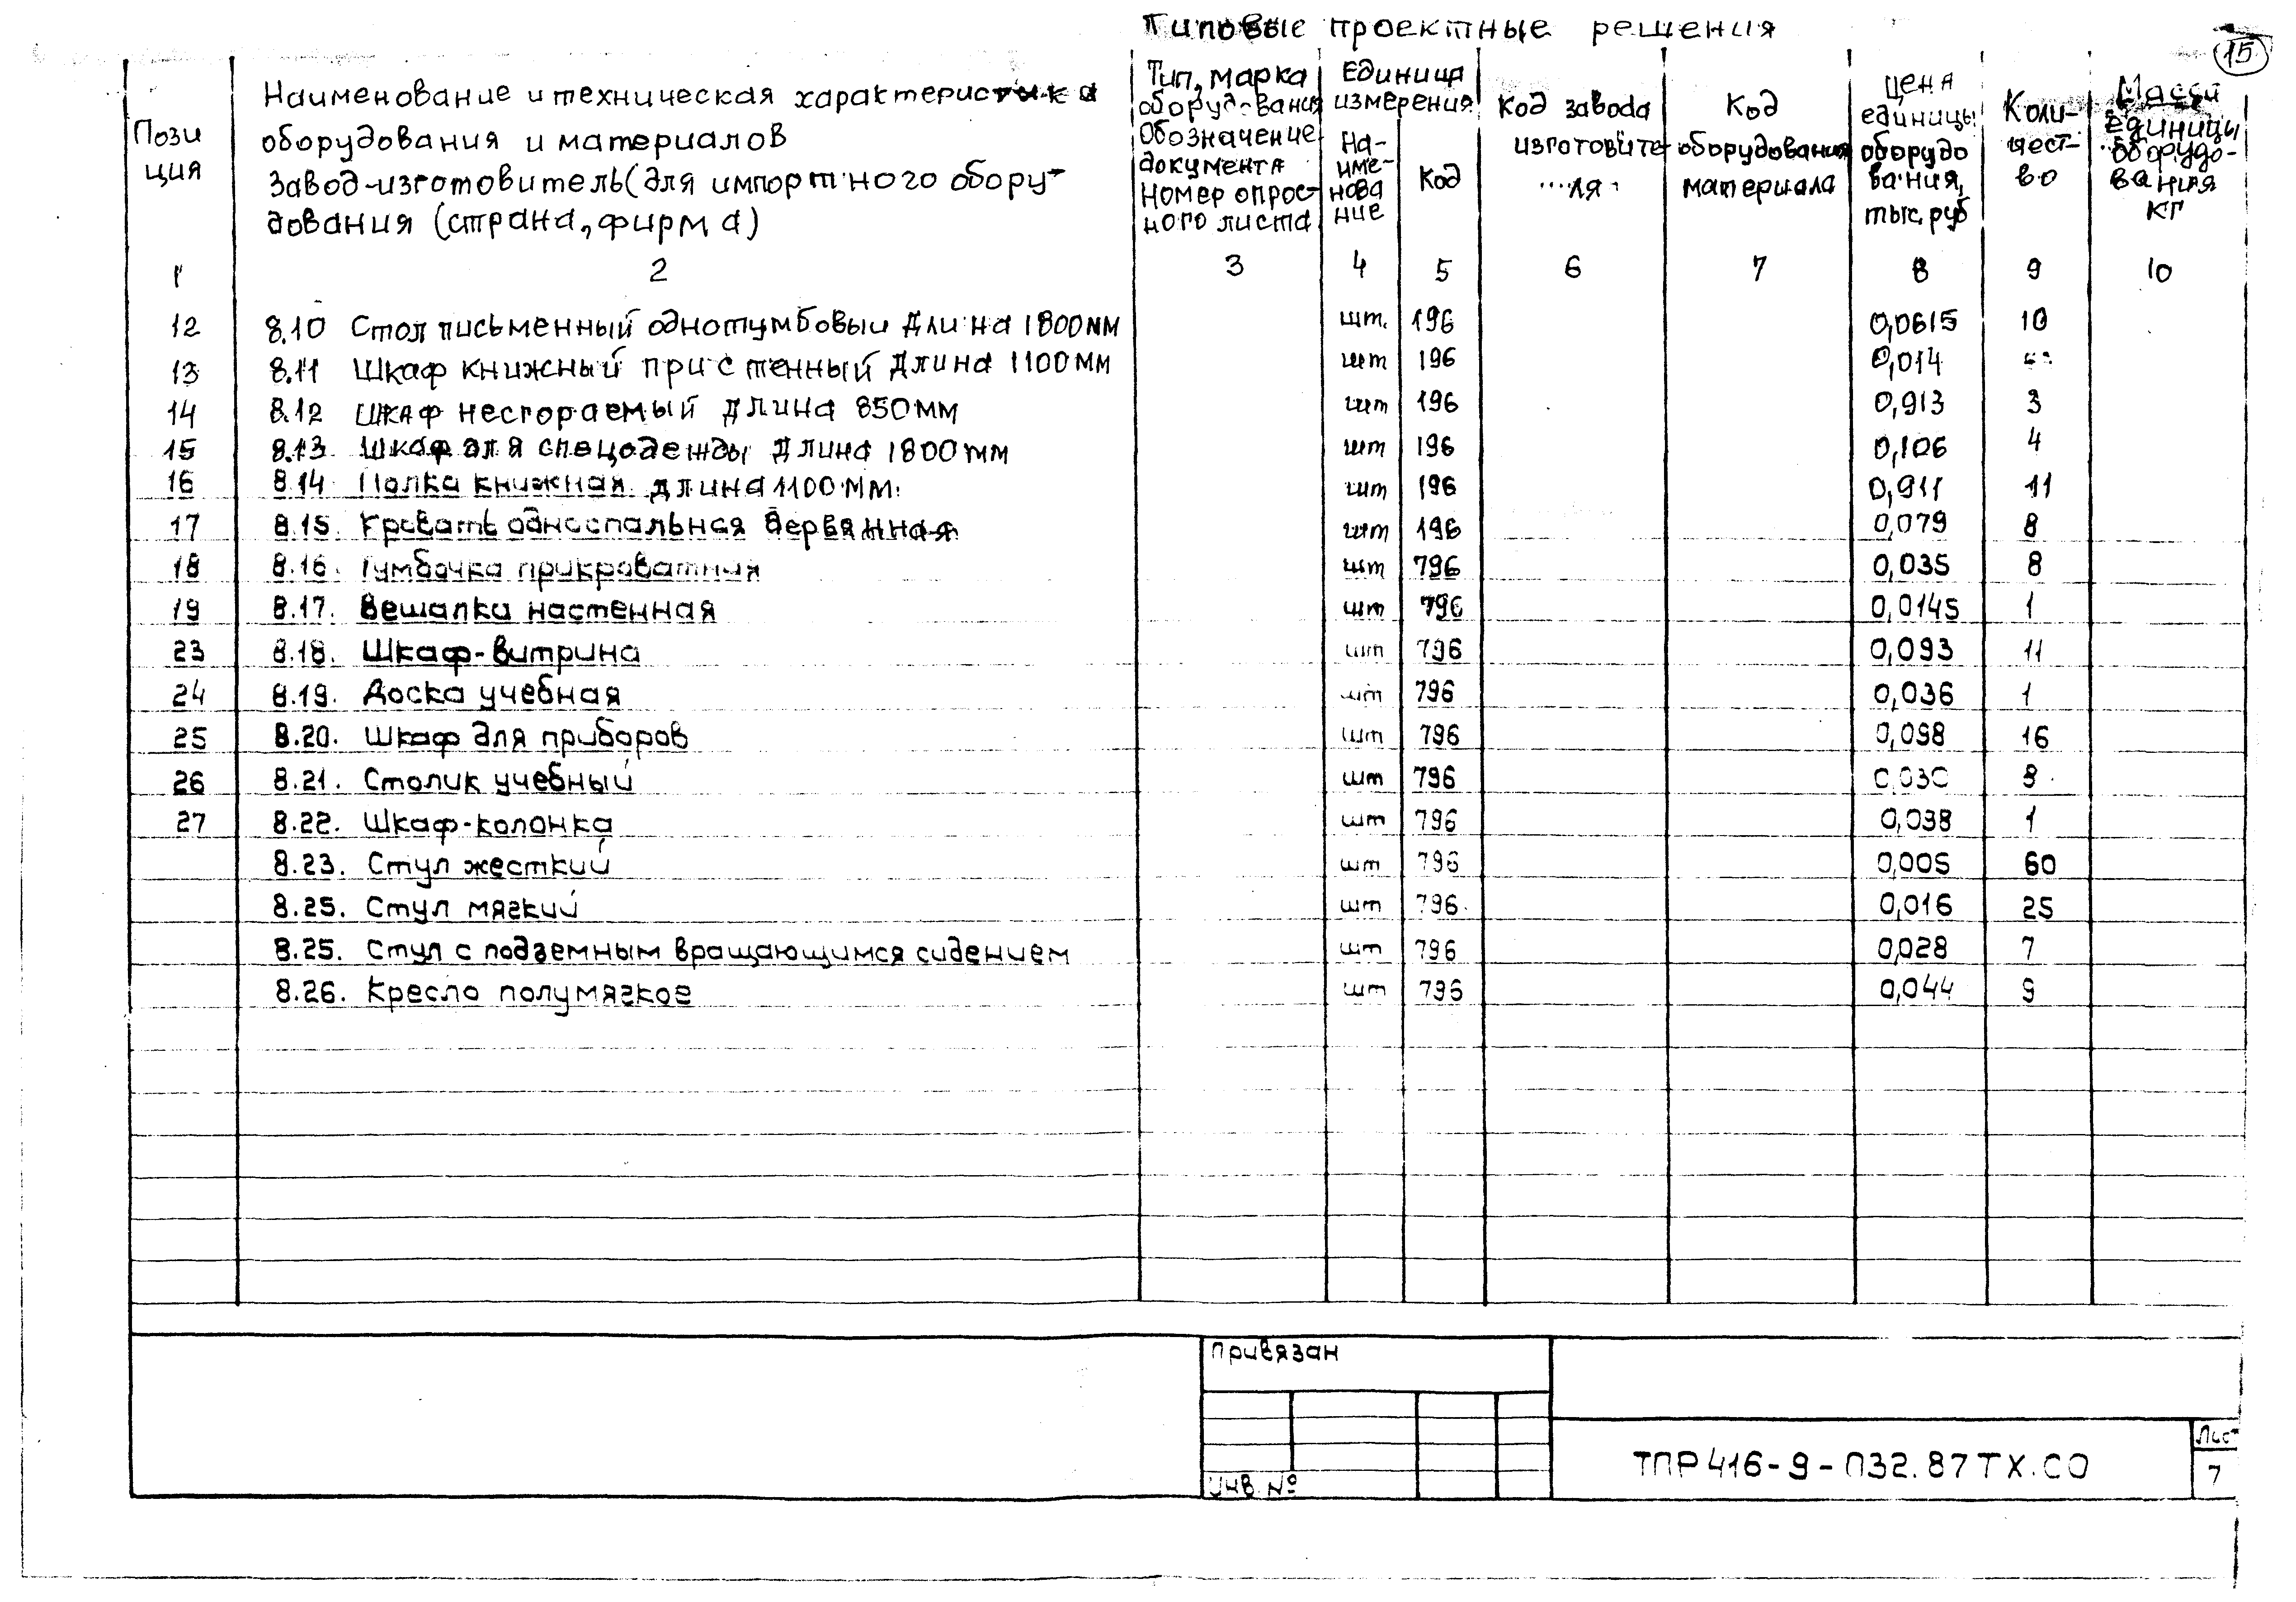 Типовые проектные решения
15
Позиция
Наименование и техническая характеристика
оборудования и материалов
Завод-изготовитель (для импортного обору-
дования (страна, фирма)
Тип, марка
оборудования
Обозначение
документа
Номер опрос-
ного листа
Единица
измерения
На-
име-
нова
ние
Код
Код завода
изготовите
ля
Код
оборудования
материала
Цена
единицы
оборудо
вания,
тыс. руб
Коли-
чест-
во
Масса
единицы
оборудо-
вания
кг
1 2 3 4 5 6 7 8 9 10
12 8.10 Стол письменный однотумбовый длина 1800мм шт. 196 0,0615 10
13 8.11 Шкаф книжный пристенный длина 1100мм шт 196 0,014
14 8.12 Шкаф несгораемый длина 850мм шт 196 0,913 3
15 8.13. Шкаф для спецодежды длина 1800мм шт 196 0,106 4
16 8.14 Полка книжная длина 1100 мм. шт 196 0,911 11
17 8.15. Кровать односпальная дервянная шт 196 0,079 8
18 8.16. Тумбочка прикроватная шт 796 0,035 8
19 8.17. Вешалка настенная шт 796 0,0145 1
23 8.18. Шкаф-витрина шт 796 0,093 11
24 8.19. Доска учебная шт 796 0,036 1
25 8.20. Шкаф для приборов шт 796 0,098 16
26 8.21. Столик учебный шт 796 0.030 8
27 8.22. Шкаф-колонка шт 796 0,038 1
8.23. Стул жесткий шт 796 0,005 60
8.25. Стул мягкий шт 796. 0,016 25
8.25. Стул с подземным вращающимся сидением шт 796 0,028 7
8.26. Кресло полумягкое шт 796 0,044 9
Привязан
Инв. №
ТПР 416-9-032.87 ТХ.СО
Лист
7